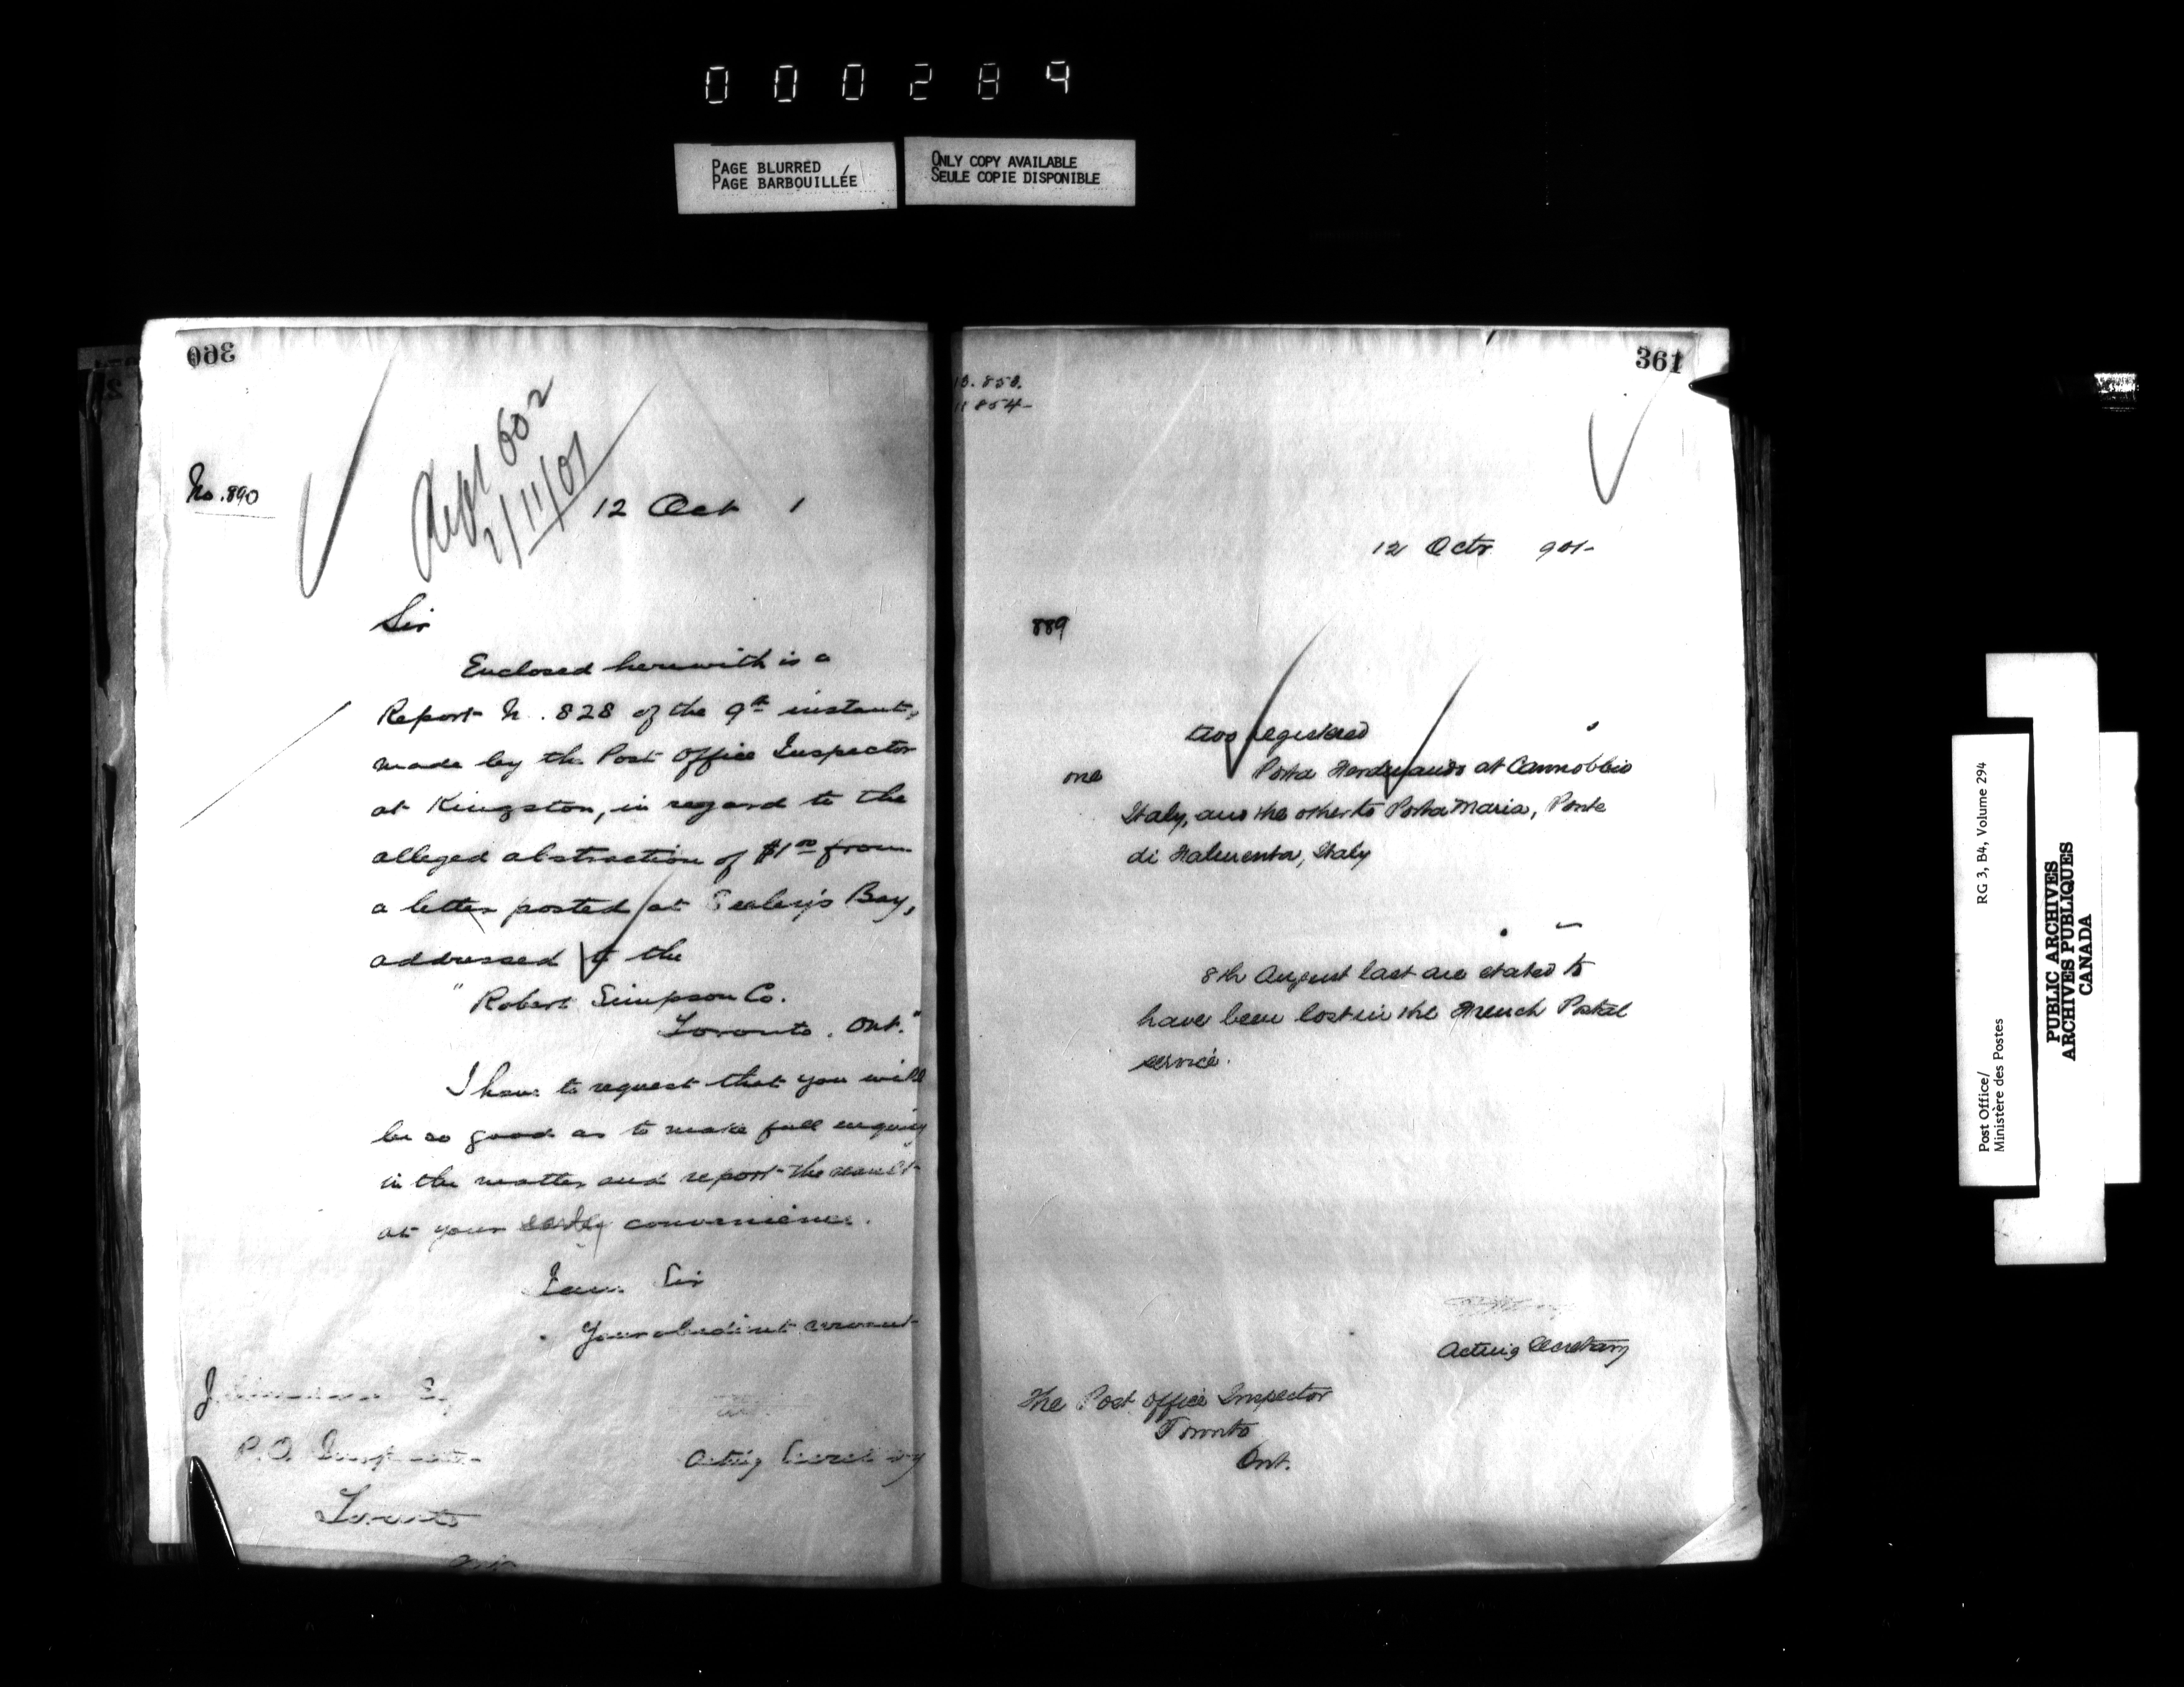 000289
PAGE BLURRED
PAGE BARBOUILLÉE
ONLY COPY AVAILABLE
SEULE COPIE DISPONIBLE
360
No. 890
602
2/11/01
12 Oct 1
Sir
Enclosed herewith is a
Report N. 828 of the 9th instant,
made by the Post Office Inspector
at Kingston, in regard to the
alleged abstraction of $1.00 from
a letter posted at Seeley's Bay,
addressed to the
"Robert Simpson Co.
Toronto. Ont."
I have to request that you will
be so good as to make full enquiry
in the matter and report the result
at your early convenience.
I am Sir
Your obedient servant
P.O. Inspector
Acting Secretary
Toronto
361
854
12 Octr 901-
889
two registered
one Porta Ferdinando at Cannobbio
Italy, and the other to Porta Maria, Ponte
di Falmenta, Italy
8th August last are stated to
have been lost in the French Postal
service.
Acting Secretary
The Post Office Inspector
Toronto
Ont.
Post Office/
Ministère des Postes
RG 3, B4, Volume 294
PUBLIC ARCHIVES
ARCHIVES PUBLIQUES
CANADA